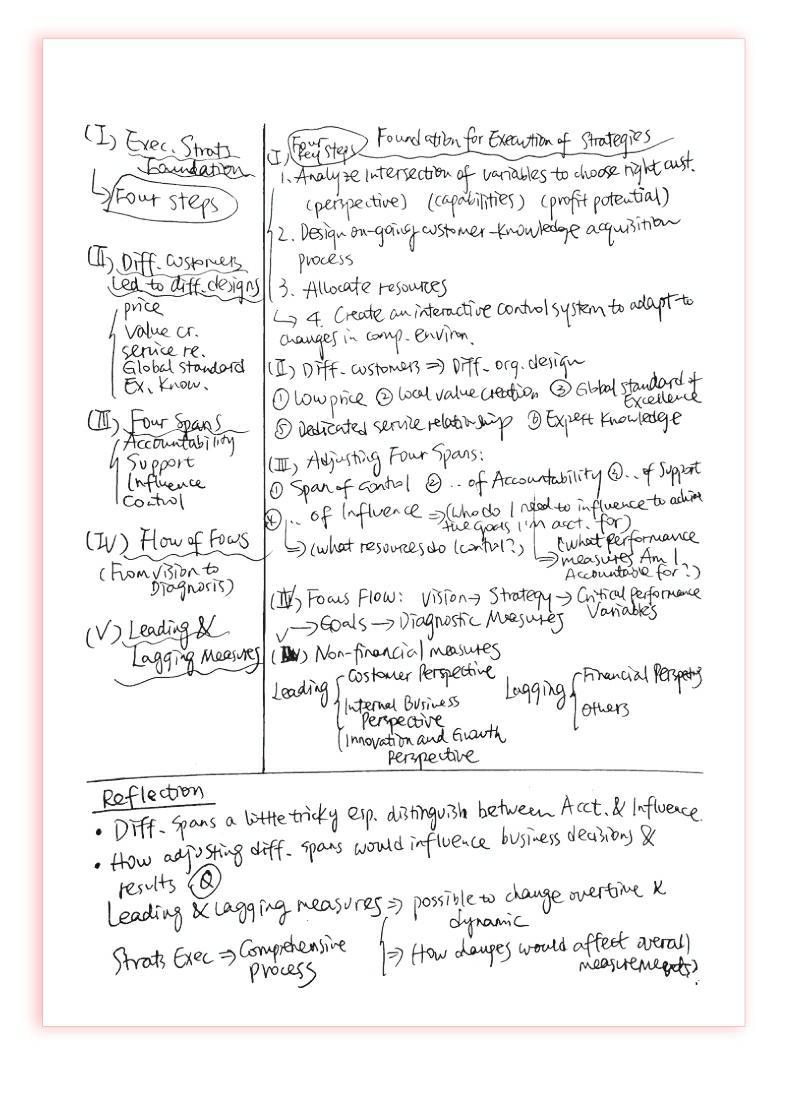 (I) Exec. Strats
Foundation
Four steps
(II) Diff. Customers
Led to diff. designs
price
Value cr.
service re.
Global standard
Ex. Know.
(III) Four Spans
Accountability
Support
Influence
Control
(IV) Flow of Focus
(From vision to
Diagnosis)
(V) Leading &
Lagging Measures
(I) Four key steps Foundation for Execution of Strategies
1. Analyze intersection of variables to choose right cust.
(perspective) (capabilities) (profit potential)
2. Design on-going customer-knowledge acquisition
process
3. Allocate resources
↳ 4. Create an interactive control system to adapt to
changes in comp. environ.
(II) Diff. customers ⇒ Diff. org. design
① Low price ② local value creation ③ Global standard of
Excellence
⑤ Dedicated service relationship ⑥ Expert Knowledge
(III) Adjusting Four Spans:
① Span of Control ② .. of Accountability .. of Support
④ .. of Influence ⇒ (who do I need to influence to achieve
the goals I'm acct. for)
⇒ (what resources do I control?) (what performance
⇒ measures Am I
Accountable for?)
(IV) Focus Flow: Vision → Strategy → Critical performance
Variables
→ Goals → Diagnostic Measures
Non-financial measures
Leading Customer Perspective
Internal Business
Perspective
Innovation and Growth
Perspective
Lagging Financial
Others
Reflection
• Diff. spans a little tricky esp. distinguish between Acct. & Influence.
• How adjusting diff. spans would influence business decisions &
results Q
Leading & Lagging measures ⇒ possible to change overtime &
dynamic
Strats Exec ⇒ Comprehensive
process
⇒ How changes would affect overall
measurements?